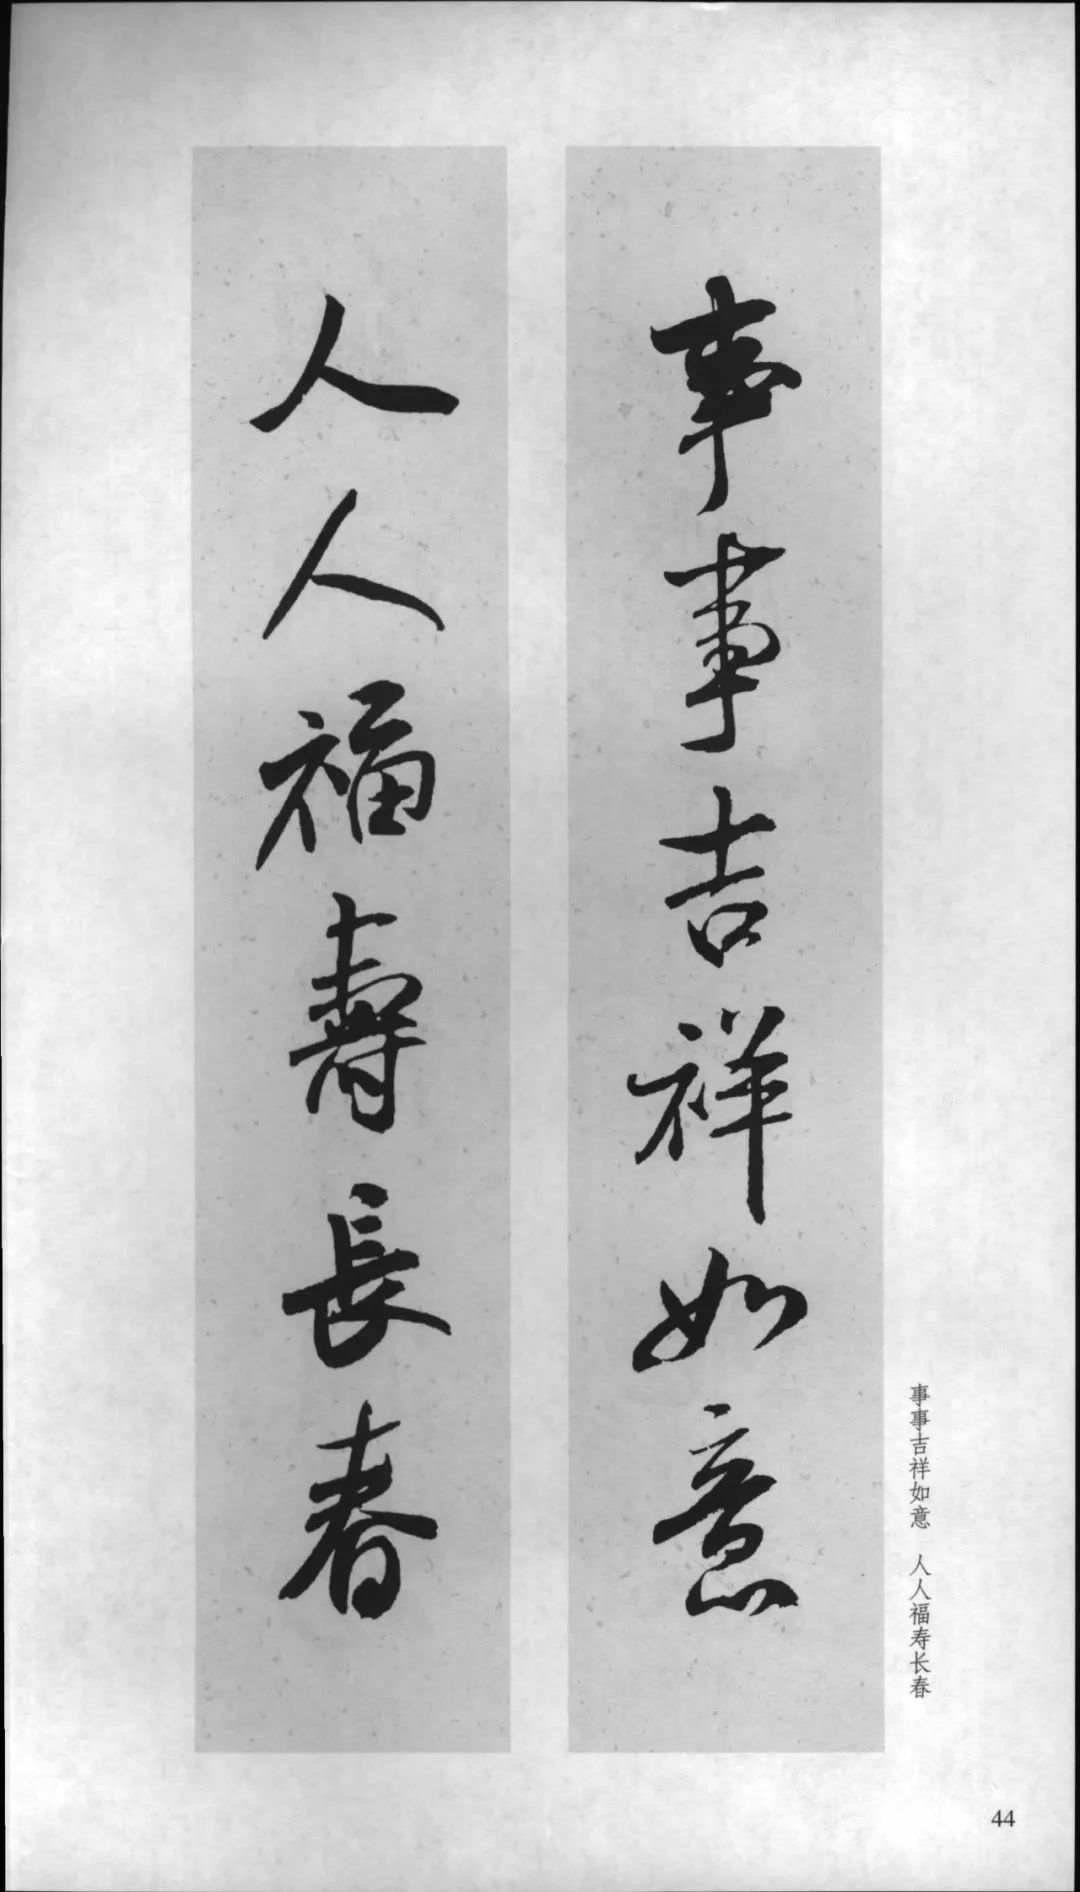 事事吉祥如意
人人福壽長春
事事吉祥如意 人人福寿长春
44